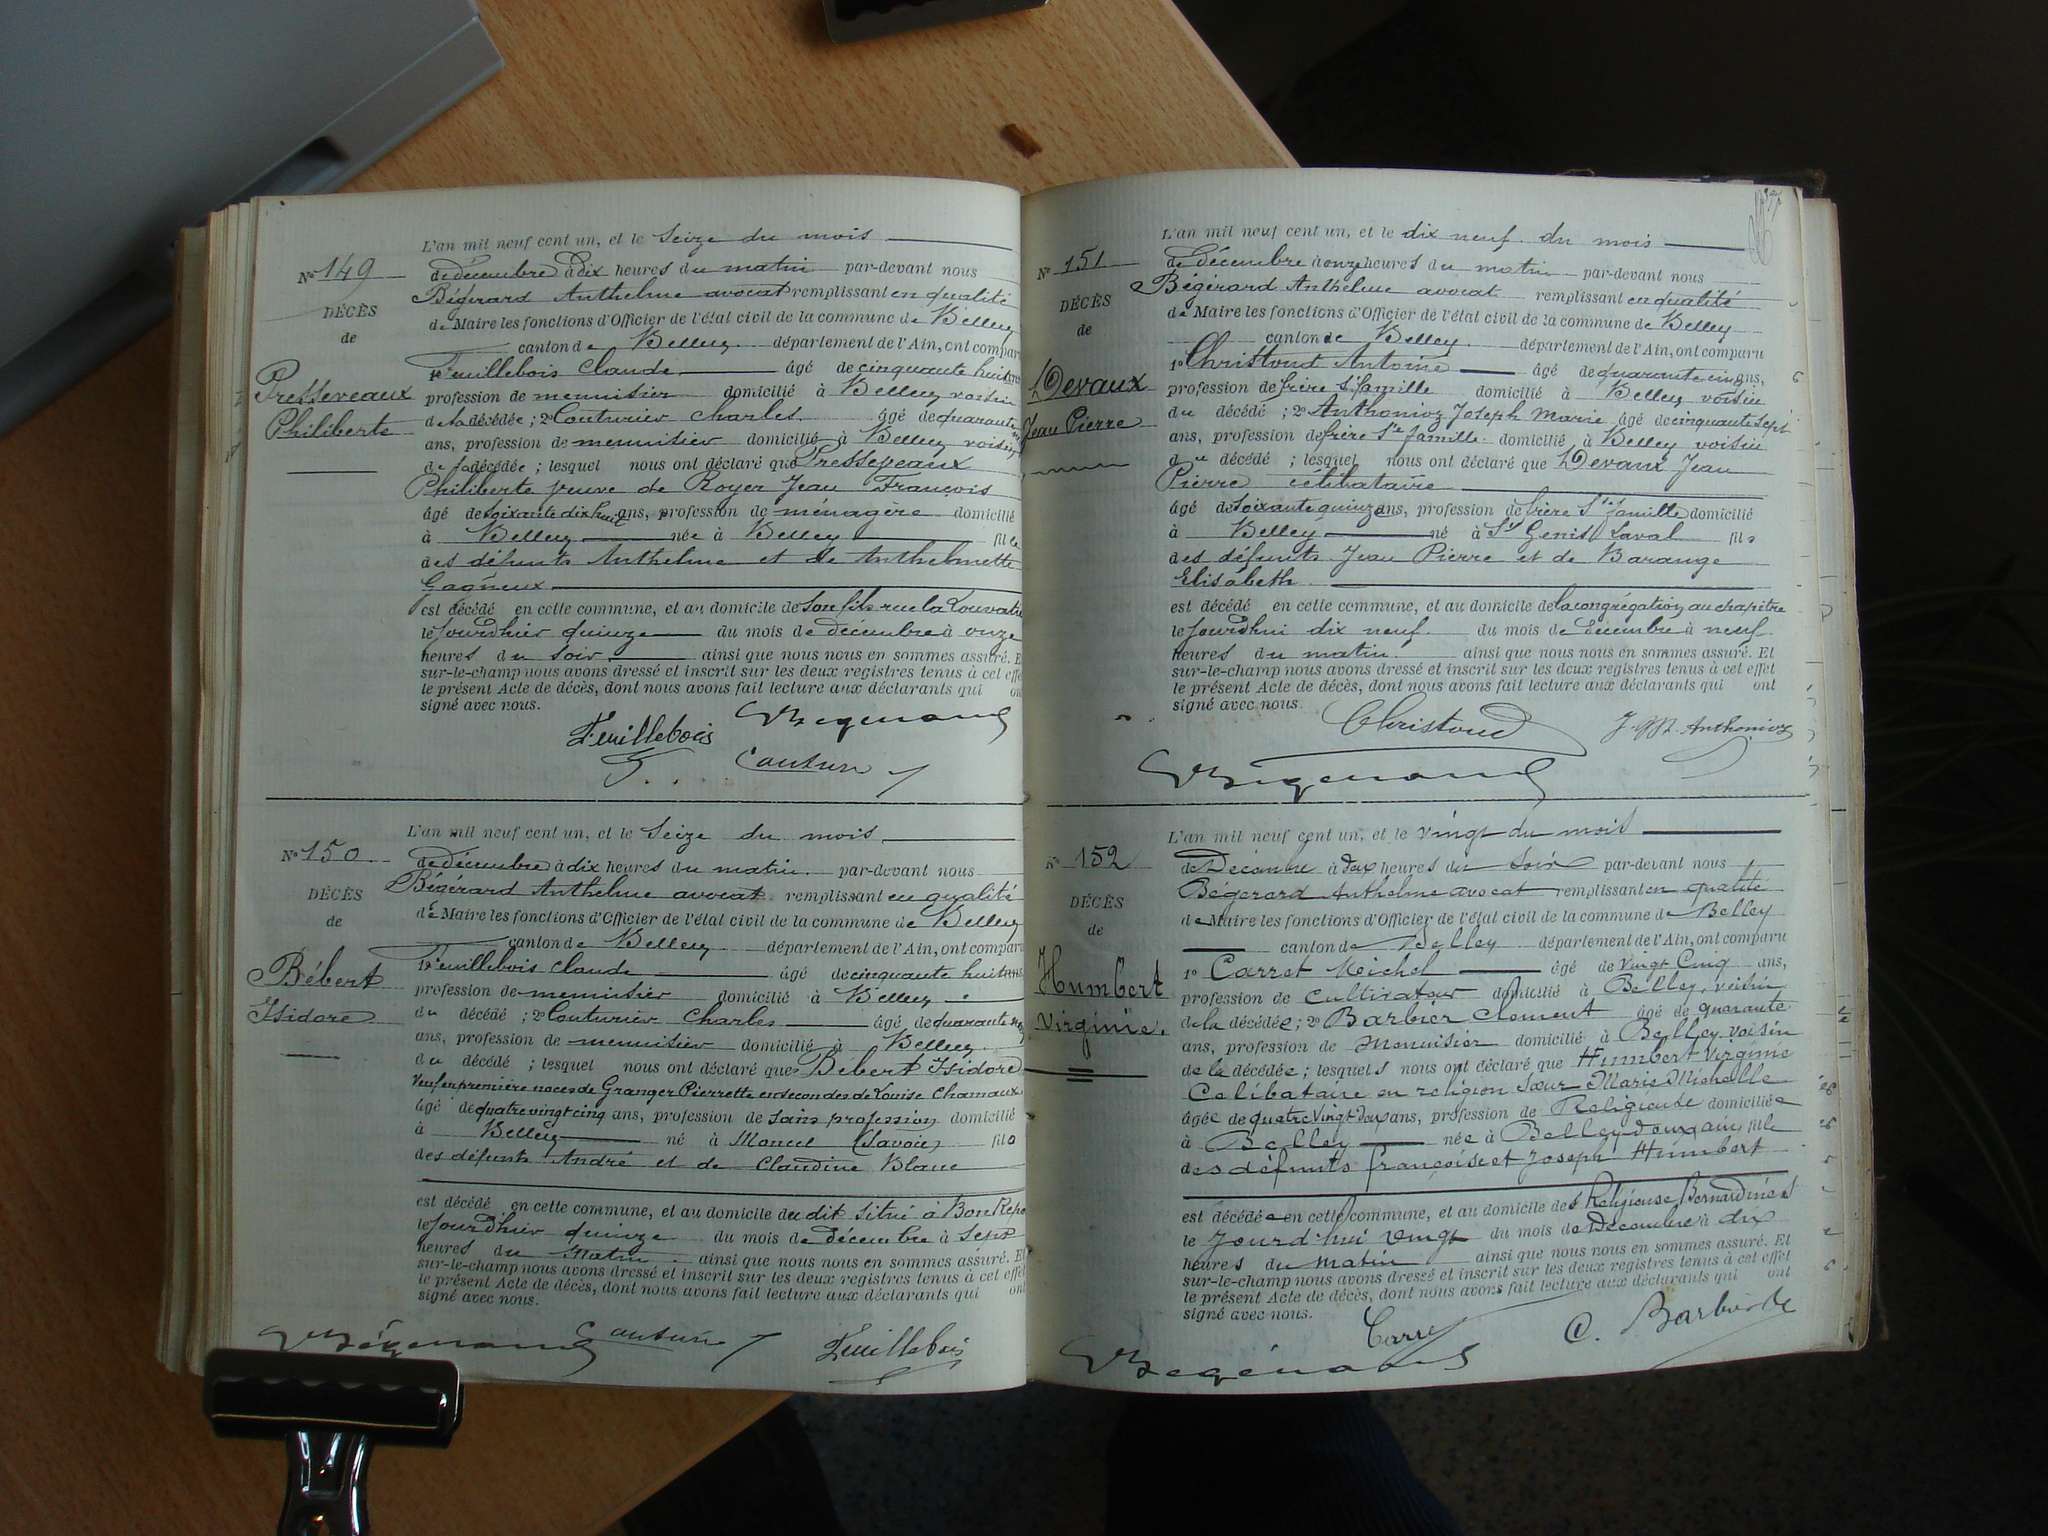 L'an mil neuf cent un, et le Seize du mois
No 149
de décembre à dix heures du matin par-devant nous
Bégerard Anthelme avocat remplissant en qualité
DÉCÈS
de
de Maire les fonctions d'Officier de l'état civil de la commune de Belley
canton de Belley département de l'Ain, ont comparu
Presseveaux
Philiberte
1o Feuillebois Claude âgé de cinquante huit ans
profession de menuisier domicilié à Belley voisin
de la décédée ; 2o Couturier Charles âgé de quarante
ans, profession de menuisier domicilié à Belley voisin
de la décédée ; lesquel nous ont déclaré que Presseveaux
Philiberte veuve de Royer Jean François
âgé de soixante dix huit ans, profession de ménagère domicilié
à Belley née à Belley fille
des défunts Anthelme et de Anthelmette
Gagneux
est décédé en cette commune, et au domicile de son fils rue la
le jourd'hier quinze du mois de décembre à onze
heures du soir ainsi que nous nous en sommes assuré. Et
sur-le-champ nous avons dressé et inscrit sur les deux registres tenus à cet effet
le présent Acte de décès, dont nous avons fait lecture aux déclarants qui ont
signé avec nous.
Feuillebois Bégerard
Couturier
L'an mil neuf cent un, et le Seize du mois
No 150
de décembre à dix heures du matin par-devant nous
Bégérard Anthelme avocat remplissant en qualité
DÉCÈS
de
de Maire les fonctions d'Officier de l'état civil de la commune de Belley
canton de Belley département de l'Ain, ont comparu
Bébert
Isidore
Feuillebois Claude âgé de cinquante huit ans
profession de menuisier domicilié à Belley
du décédé ; 2o Couturier Charles âgé de quarante
ans, profession de menuisier domicilié à Belley
du décédé ; lesquel nous ont déclaré que Bébert Isidore
Veuf en première noces de Granger Pierrette en secondes de Louise Chamaux
âgé de quatre vingt cinq ans, profession de sans profession domicilié
à Belley né à Marcel (Savoie) fils
des défunts André et de Claudine Blanc
est décédé en cette commune, et au domicile du dit situé à Bon Repo
le jourd'hier quinze du mois de décembre à sept
heures du Matin ainsi que nous nous en sommes assuré. Et
sur-le-champ nous avons dressé et inscrit sur les deux registres tenus à cet effet
le présent Acte de décès, dont nous avons fait lecture aux déclarants qui ont
signé avec nous.
Bégerard Couturier Feuillebois
L'an mil neuf cent un, et le dix neuf du mois
No 151
de décembre à onze heures du matin par-devant nous
Bégérard Anthelme avocat remplissant en qualité
DÉCÈS
de
de Maire les fonctions d'Officier de l'état civil de la commune de Belley
canton de Belley département de l'Ain, ont comparu
Devaux
Jean Pierre
1o Christoud Antoine âgé de quarante cinq ans,
profession de frère Ste famille domicilié à Belley voisin
du décédé ; 2o Anthonioz Joseph Marie âgé de cinquante sept
ans, profession de frère Ste famille domicilié à Belley voisin
du décédé ; lesquel nous ont déclaré que Devaux Jean
Pierre célibataire
âgé de soixante quinze ans, profession de frère Ste famille domicilié
à Belley né à St Genis Laval fils
des défunts Jean Pierre et de Barange
Elisabeth
est décédé en cette commune, et au domicile de la congrégation au chapitre
le jourd'hui dix neuf du mois de décembre à neuf
heures du matin ainsi que nous nous en sommes assuré. Et
sur-le-champ nous avons dressé et inscrit sur les deux registres tenus à cet effet
le présent Acte de décès, dont nous avons fait lecture aux déclarants qui ont
signé avec nous.
Christoud J. M. Anthonioz
Bégerard
L'an mil neuf cent un, et le vingt du mois
No 152
de Décembre à deux heures du soir par-devant nous
Bégerard Anthelme avocat remplissant en qualité
DÉCÈS
de
de Maire les fonctions d'Officier de l'état civil de la commune de Belley
canton de Belley département de l'Ain, ont comparu
Humbert
Virginie.
1o Carret Michel âgé de vingt Cinq ans,
profession de Cultivateur domicilié à Belley, voisin
de la décédée ; 2o Barbier Clement âgé de quarante
ans, profession de Menuisier domicilié à Belley voisin
de la décédée ; lesquels nous ont déclaré que Humbert Virginie
Celibataire en religion Sœur Marie Michelle
âgée de quatre vingt deux ans, profession de Religieuse domiciliée
à Belley née à Belley fille
des défunts françoise et Joseph Humbert
est décédée en cette commune, et au domicile des Religieuse Bernardines
le Jourd'hui vingt du mois de Décembre à dix
heures du Matin ainsi que nous nous en sommes assuré. Et
sur-le-champ nous avons dressé et inscrit sur les deux registres tenus à cet effet
le présent Acte de décès, dont nous avons fait lecture aux déclarants qui ont
signé avec nous.
Carret C. Barbier
Bégerard